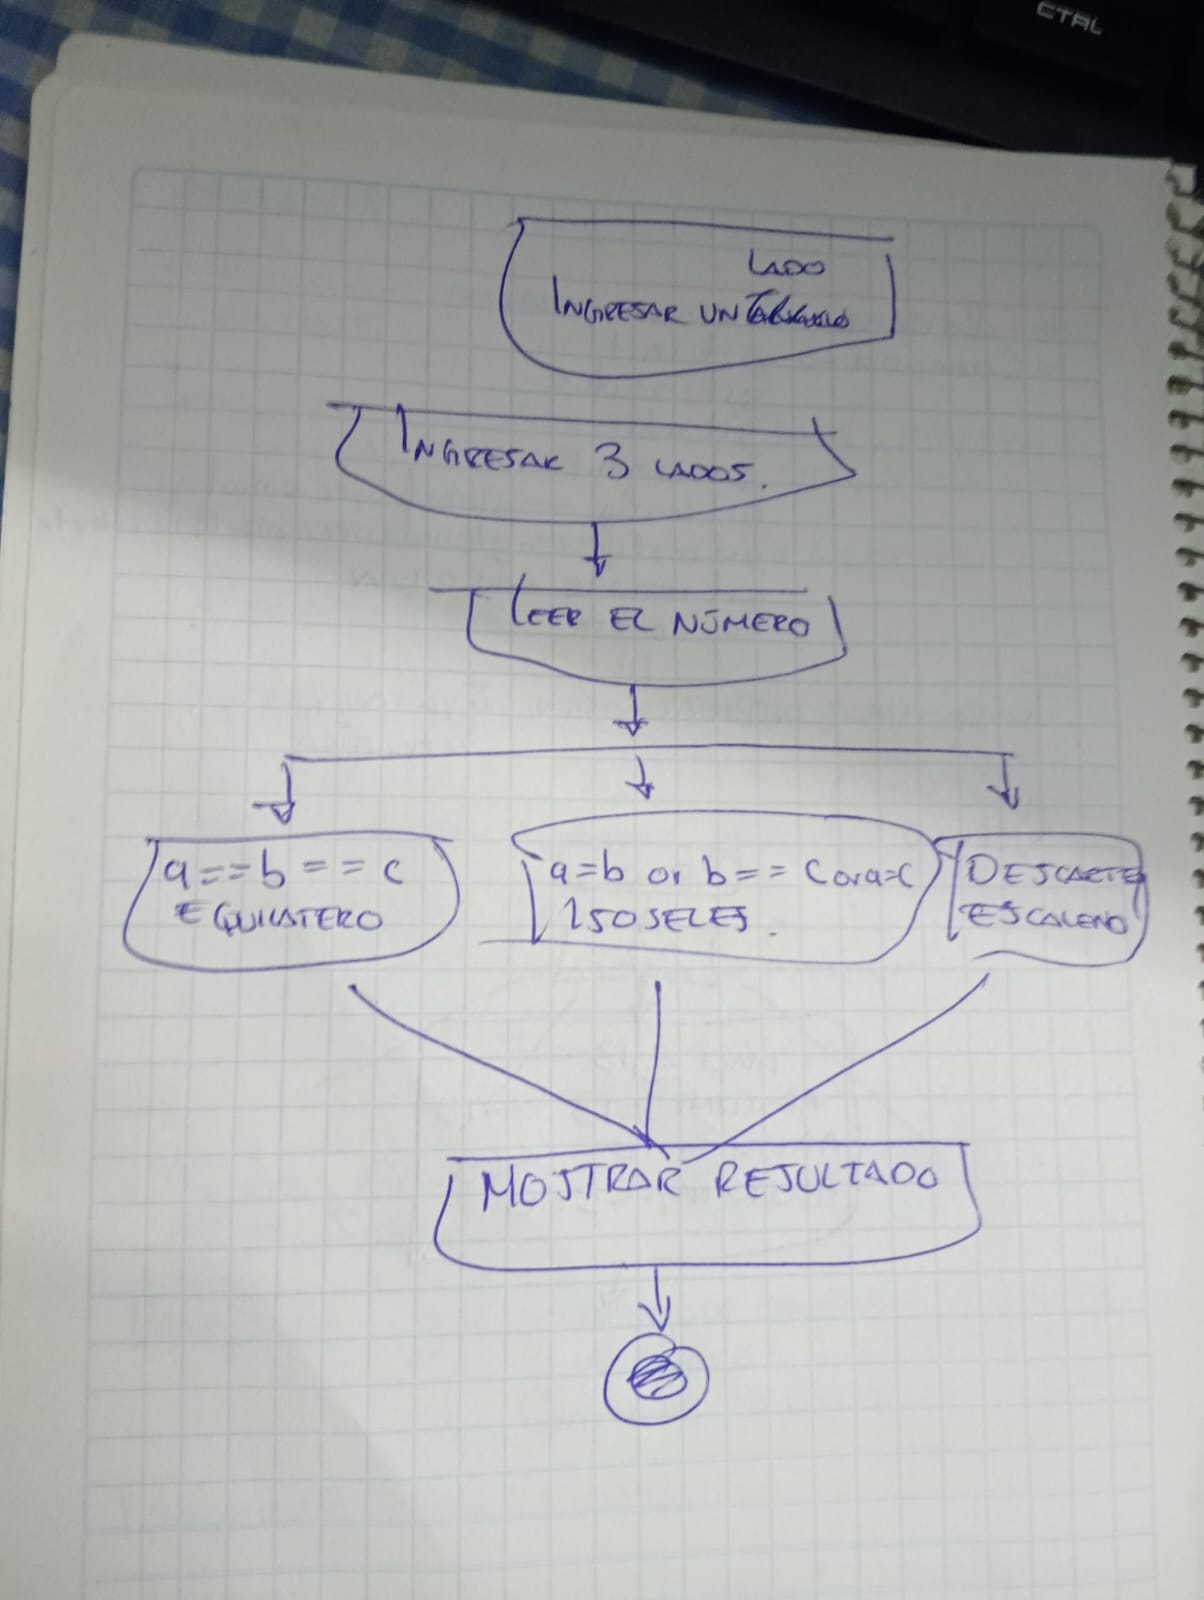 CTRL
LADO
INGRESAR UN
INGRESAR 3 LADOS.
LEER EL NÚMERO
a==b==c
EQUILATERO
a=b or b==c or a=c
ISOSELES.
DESCARTE
ESCALENO
MOSTRAR RESULTADO